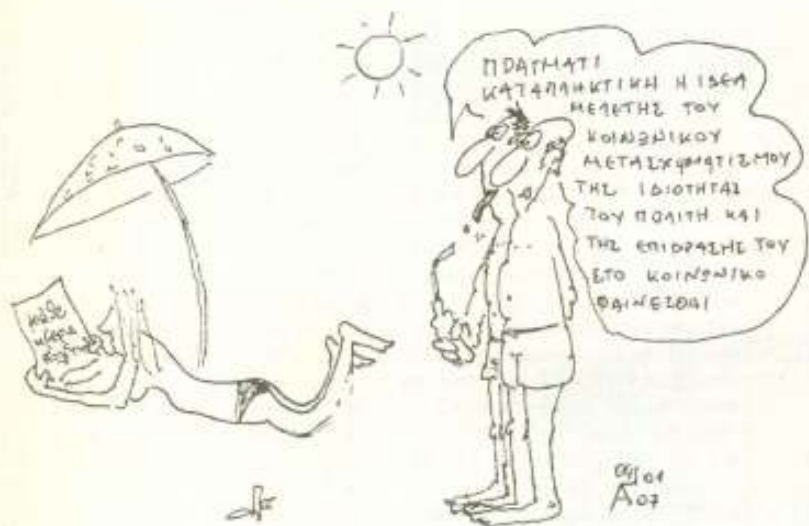 ΠΡΑΓΜΑΤΙ
ΚΑΤΑΠΛΗΚΤΙΚΗ Η ΙΔΕΑ
ΜΕΛΕΤΗΣ ΤΟΥ
ΚΟΙΝΩΝΙΚΟΥ
ΜΕΤΑΣΧΗΜΑΤΙΣΜΟΥ
ΤΗΣ ΙΔΙΟΤΗΤΑΣ
ΤΟΥ ΠΟΛΙΤΗ ΚΑΙ
ΤΗΣ ΕΠΙΔΡΑΣΗΣ ΤΟΥ
ΣΤΟ ΚΟΙΝΩΝΙΚΟ
ΦΑΙΝΕΣΘΑΙ
κάθε
μέρα
01
07